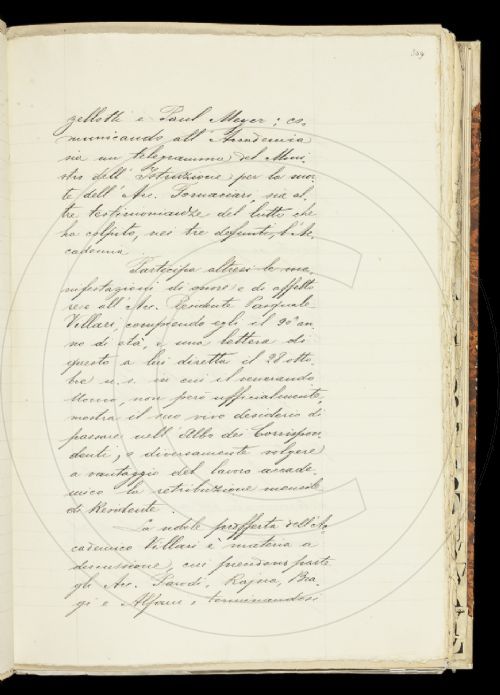 309
zelloth e Paul Meyer; co-
municando all'Accademia
sia un telegramma del Mini-
stro dell'Istruzione per la mor-
te dell'Acc. Tornaciari, sia al-
tre testimonianze del lutto che
ha colpito, nei tre defunti, l'Ac-
cademia.
Partecipa altresì le ma-
nifestazioni di onore e di affetto
rese all'Acc. Residente Pasquale
Villari, compiendo egli il 90° an-
no di età, e una lettera di
questo a lui diretta il 28 otto-
bre u. s. in cui il venerando
Uomo, non però ufficialmente,
mostra il suo vivo desiderio di
passare nell'Albo dei Corrispon-
denti, e diversamente volgere
a vantaggio del lavoro accade-
mico la retribuzione mensile
di Residente.
La nobile profferta dell'Ac-
cademico Villari è materia a
discussione, cui prendono parte
gli Acc. Parodi, Rajna, Bia-
gi e Alfani; terminandosi